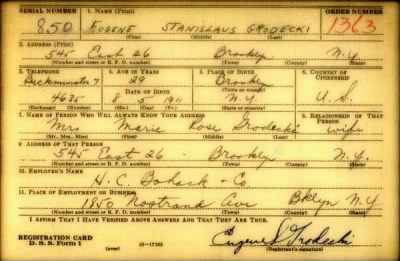 SERIAL NUMBER 1. NAME (Print) ORDER NUMBER
850 EUGENE STANISLAUS GRODECKI 1363
(First) (Middle) (Last)
2. ADDRESS (Print)
545 East 26 Brooklyn N.Y.
(Number and street or R. F. D. number) (Town) (County) (State)
3. TELEPHONE 4. AGE IN YEARS 5. PLACE OF BIRTH 6. COUNTRY OF CITIZENSHIP
Buckminster 7 29 Brooklyn
DATE OF BIRTH (Town or county)
4635 8 1911 N.Y. U.S.
(Exchange) (Number) (Mo.) (Day) (Yr.) (State or country)
7. NAME OF PERSON WHO WILL ALWAYS KNOW YOUR ADDRESS 8. RELATIONSHIP OF THAT PERSON
Mrs Marie Rose Grodecki wife
(Mr., Mrs., Miss) (First) (Middle) (Last)
9. ADDRESS OF THAT PERSON
545 East 26 - Brooklyn N.Y.
(Number and street or R. F. D. number) (Town) (County) (State)
10. EMPLOYER'S NAME
H. C. Bohack - Co
11. PLACE OF EMPLOYMENT OR BUSINESS
1850 Nostrand Ave Bklyn N.Y
(Number and street or R. F. D. number) (Town) (County) (State)
I AFFIRM THAT I HAVE VERIFIED ABOVE ANSWERS AND THAT THEY ARE TRUE.
REGISTRATION CARD
D. S. S. Form 1 (over) Eugene S Grodecki
(Registrant's signature)